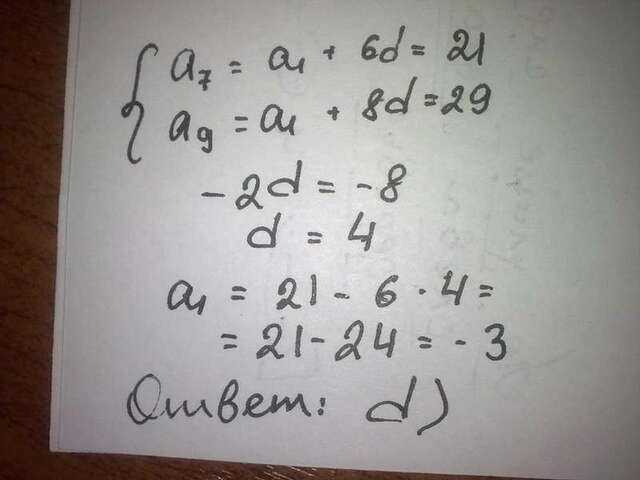 a₇ = a₁ + 6d = 21
a₉ = a₁ + 8d = 29
-2d = -8
d = 4
a₁ = 21 - 6 · 4 =
= 21 - 24 = -3
Ответ: d)